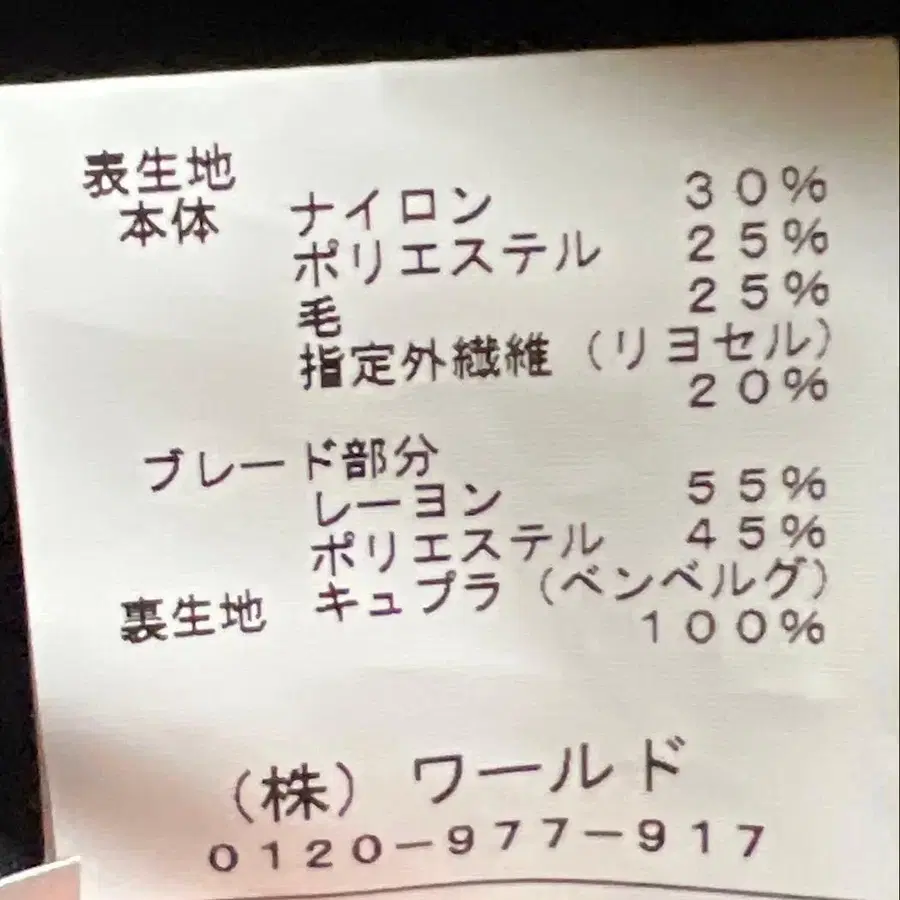 表生地
本体 ナイロン 30%
ポリエステル 25%
毛 25%
指定外繊維（リヨセル）
20%
ブレード部分
レーヨン 55%
ポリエステル 45%
裏生地 キュプラ（ベンベルグ）
100%
（株）ワールド
0120-977-917